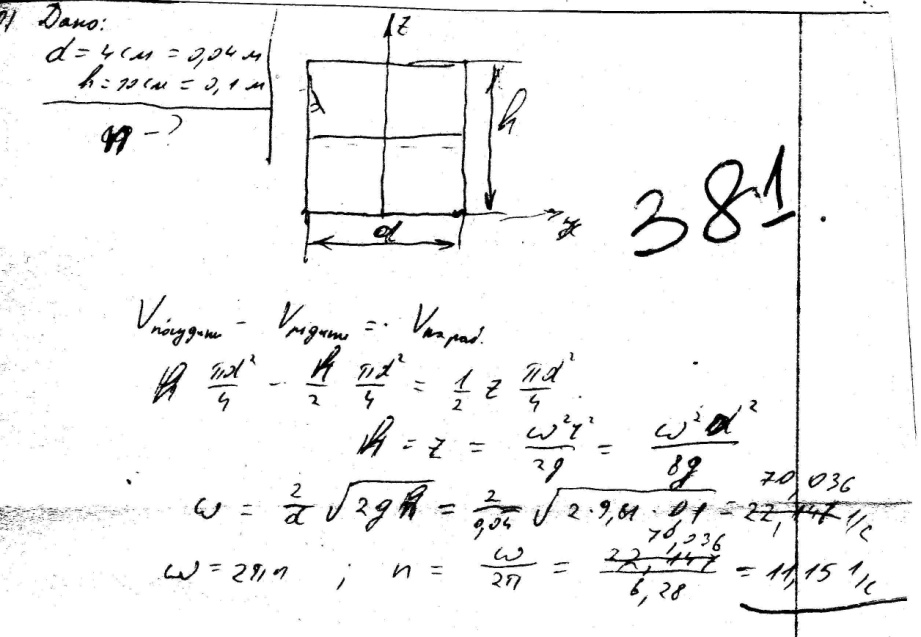 Дано:
d = 4 см = 0,04 м
h = 10 см = 0,1 м
n - ?
z
h
d
y
381.
Vпосудини - Vрідини = Vпараб.
h πd²/4 - h/2 πd²/4 = 1/2 z πd²/4
h = z = ω²r²/2g = ω²d²/8g
ω = 2/d √2gh = 2/0,04 √2·9,81·0,1 = 22,147 70,036 1/с
ω = 2πn ; n = ω/2π = 22,147 70,036/6,28 = 11,15 1/с